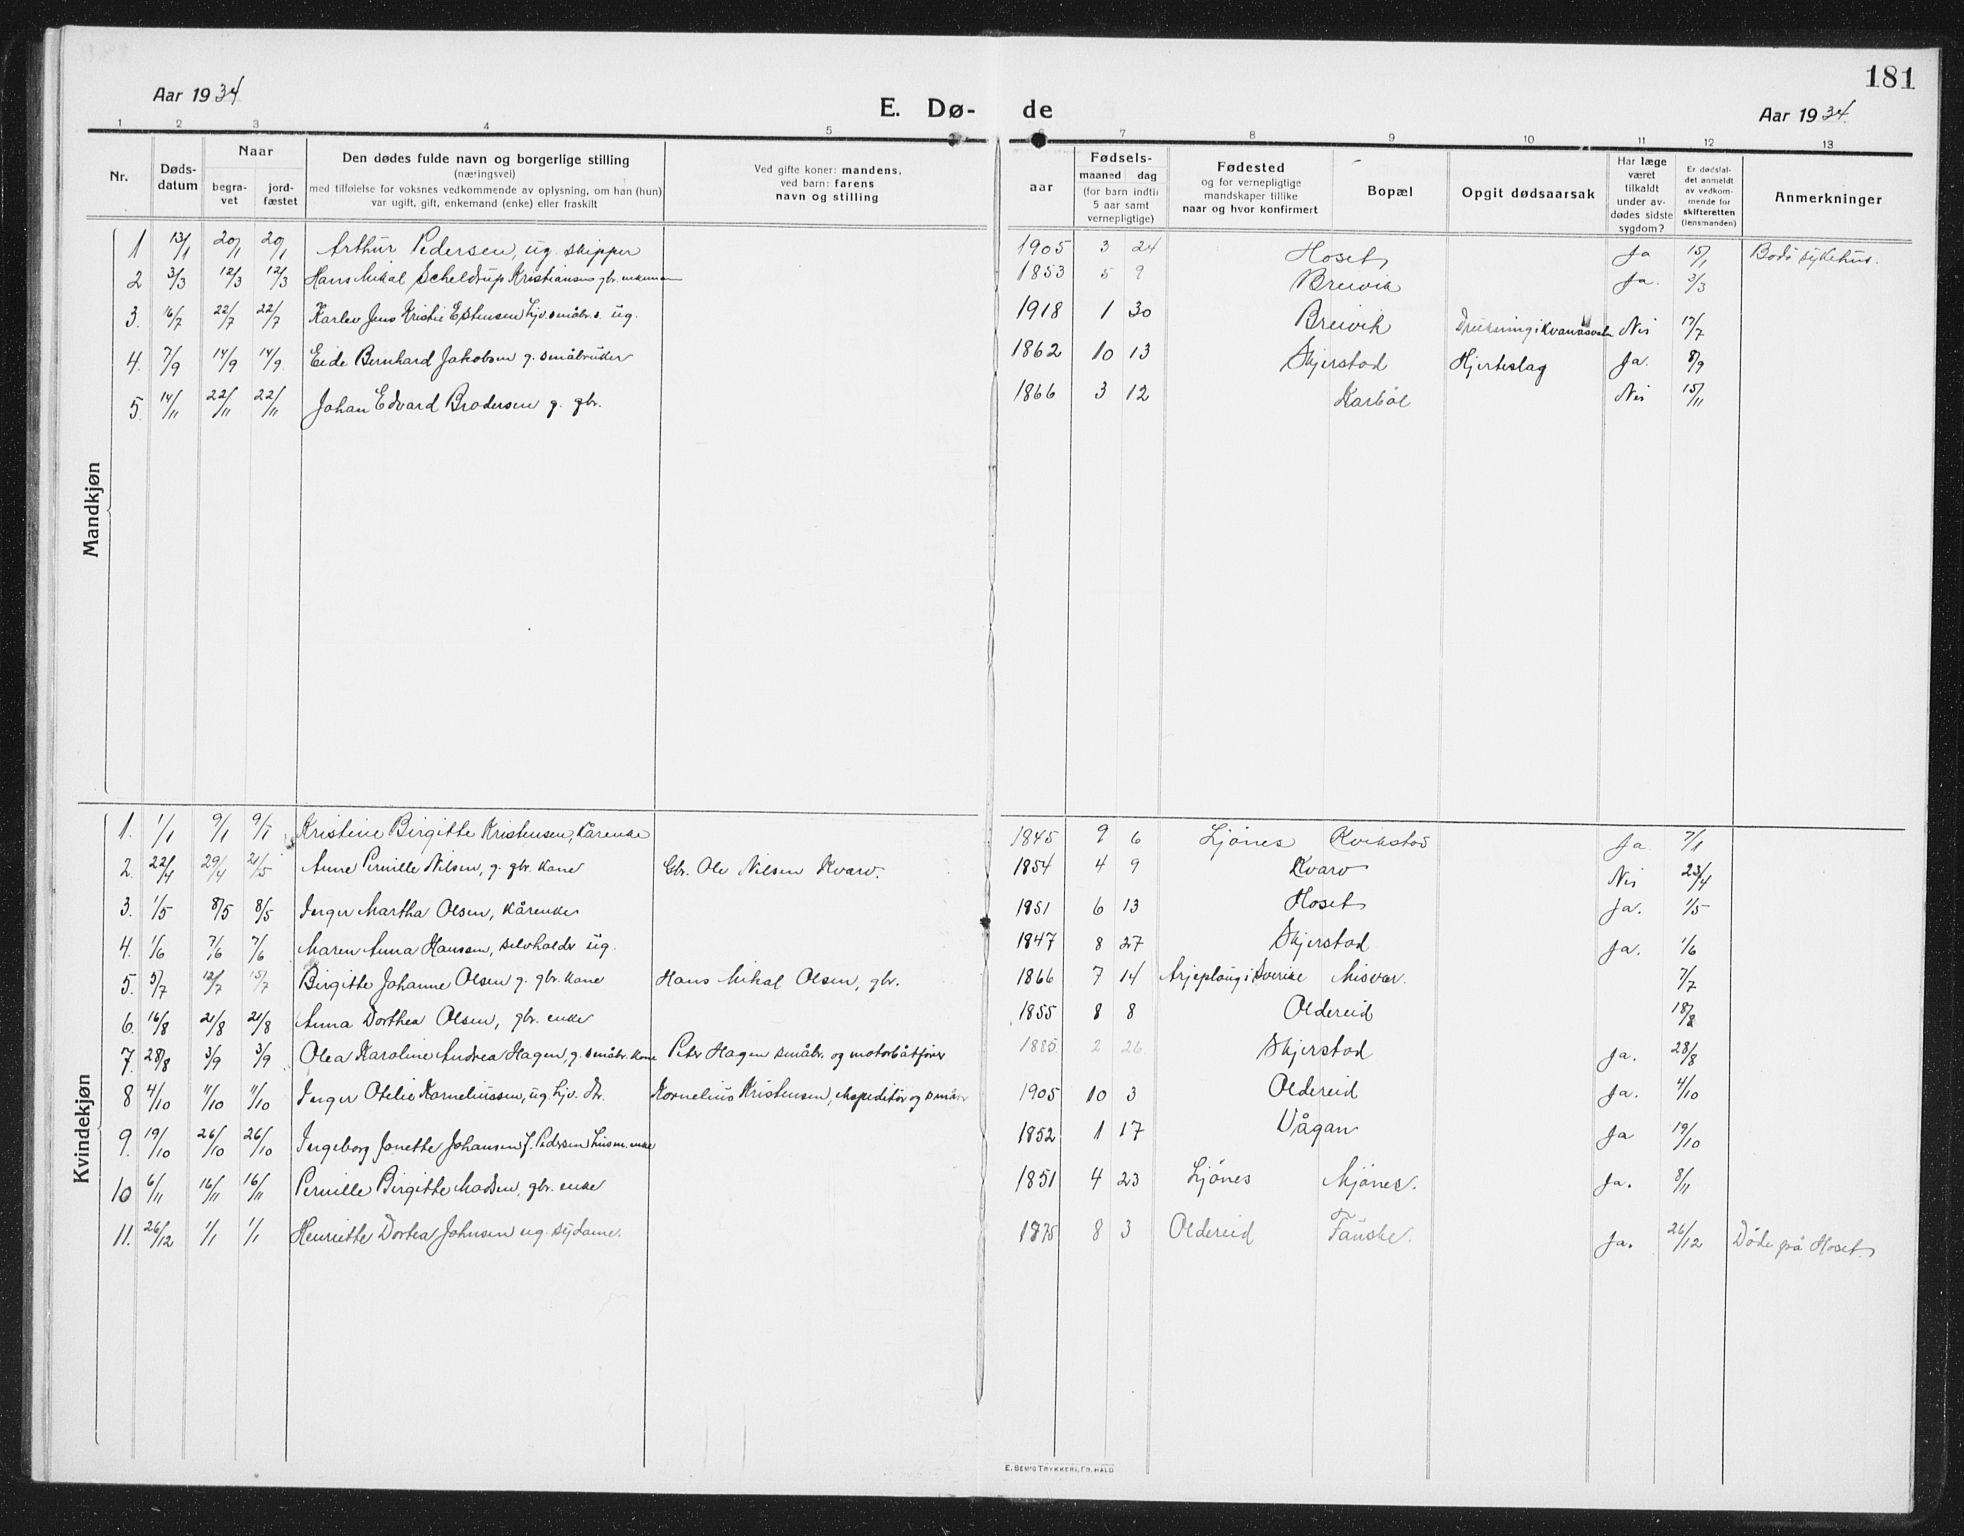 181
Aar 1934
E. Dø- de
Aar 1934.
1 2 3 4 5 6 7 8 9 10 11 12 13
Nr.
Døds-
datum
Naar
begra-
vet
jord-
fæstet
Den dødes fulde navn og borgerlige stilling
(næringsvei)
med tilføielse for voksnes vedkommende av oplysning, om han (hun)
var ugift, gift, enkemand (enke) eller fraskilt
Ved gifte koner: mandens,
ved barn: farens
navn og stilling
Fødsels-
aar
maaned dag
(for barn indtil
5 aar samt
vernepligtige)
Fødested
og for vernepligtige
mandskaper tillike
naar og hvor konfirmert
Bopæl
Opgit dødsaarsak
Har læge
været
tilkaldt
under av-
dødes sidste
sygdom?
Er dødsfal-
det anmeldt
av vedkom-
mende for
skifteretten
(lensmanden)
Anmerkninger
Mandkjøn
1 13/1 20/1 20/1 Arthur Pedersen, ug. skipper 1905 3 24 Hoset Ja 15/1 Bodö sykehus.
2 3/3 12/3 12/3 Hans Mikal Scheldrup Kristiansen gbr. 1853 5 9 Breivik Ja. 3/3
3. 16/7 22/7 22/7 Karlev Jens Kristie Estensen hjv. småbr. s. ug. 1918 1 30 Breivik Drukning i Nei 17/7
4. 7/9 14/9 14/9. Eide Bernhard Jakobsen g. småbruker 1862 10 13 Skjerstad Hjerteslag Ja. 8/9
5. 14/11 22/11 22/11 Johan Edvard Brodersen g. gbr. 1866 3 12 Karböl Nei 15/11
Kvindekjøn
1. 1/1 9/1 9/1 Kristine Birgitte Kristensen, kårenke 1845 9 6 Ljönes Kvikstad Ja. 7/1
2. 22/4 29/4 21/5 Anne Pernille Nilsen, g. gbr. kone Gbr. Ole Nilsen Kvarv. 1854 4 9 Kvarv Nei 23/4
3. 1/5 8/5 8/5 Inger Martha Olsen, kårenke 1851 6 13 Hoset Ja. 1/5
4. 1/6 7/6 7/6 Maren Anna Hansen, selvholder ug. 1847 8 27 Skjerstad Ja. 1/6
5. 5/7 12/7 15/7 Birgitte Johanne Olsen g. gbr. kone Hans Mikal Olsen, gbr. 1866 7 14 Arjeploug i Sverike Misvær. 7/7
6. 16/8 21/8 21/8 Anna Dorthea Olsen, gbr. enke 1855 8 8 Oldereid 18/8
7. 28/8 3/9 3/9 Olea Karoline Andrea Hagen, g. småbr. kone Peter Hagen småbr. og motorbåtförer 1885. 2 26 Skjerstad Ja. 28/8
8 4/10 11/10 11/10 Inger Otelie Korneliussen, ug. hjv. dtr. Kornelius Kristensen, ekspeditör og småbr 1905 10 3 Oldereid Ja. 4/10
9. 19/10 26/10 26/10 Ingeborg Jonette Johansen f. Pedersen husm. enke 1852 1 17 Vågan Ja 19/10
10 6/11 16/11 16/11 Pernille Birgitte Madsen, gbr. enke 1851 4 23 Ljönes Mjönes. Ja. 8/11
11. 26/12 1/1 1/1 Henriette Dortea Johnsen ug. sydame. 1875 8 3 Oldereid Fauske. Ja. 26/12 Döde på Hoset.
E. SEM'S TRYKKERI, FR. HALD